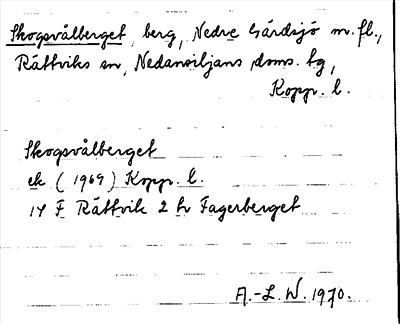 Skogsvålberget, berg, Nedre Gärdsjö m.fl.,
Rättviks sn, Nedansiljans doms. tg,
Kopp. l.
Skogsvålberget
ek (1969) Kopp. l.
14 F Rättvik 2 h Fagerberget
A.-L. W. 1970.